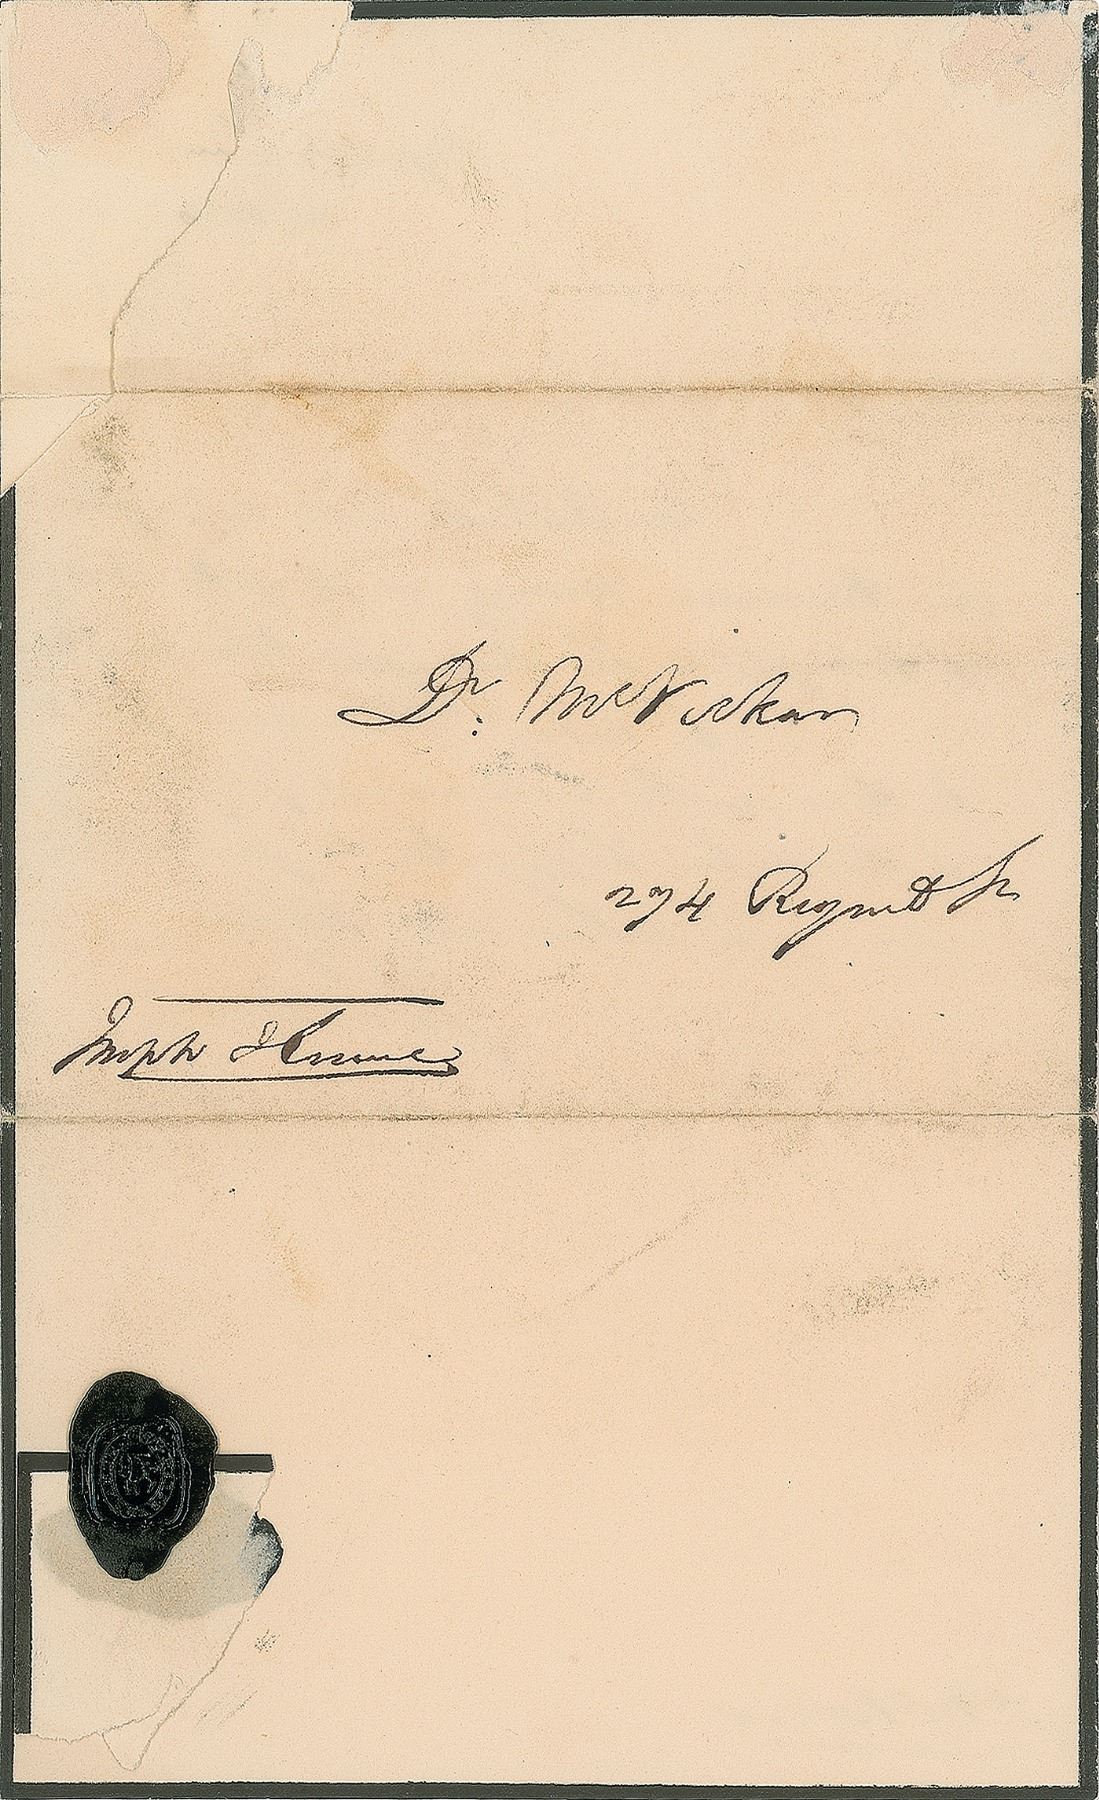 Dr. McVickar
274 Regent St
Joseph Hume